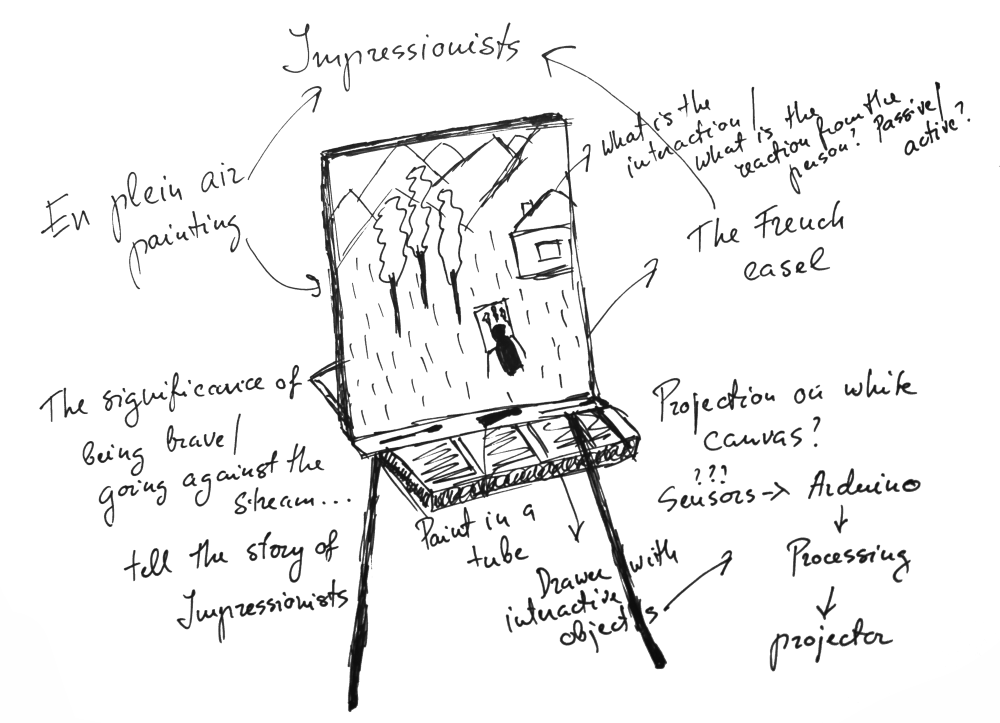 Impressionists
what is the
interaction/
what is the
reaction from the
person? Passive/
active?
En plein air
painting
The French
easel
The significance of
being brave/
going against the
stream...
tell the story of
Impressionists
Paint in a
tube
Drawer with
interactive
objects
Projection on white
canvas?
???
Sensors -> Arduino
Processing
projector